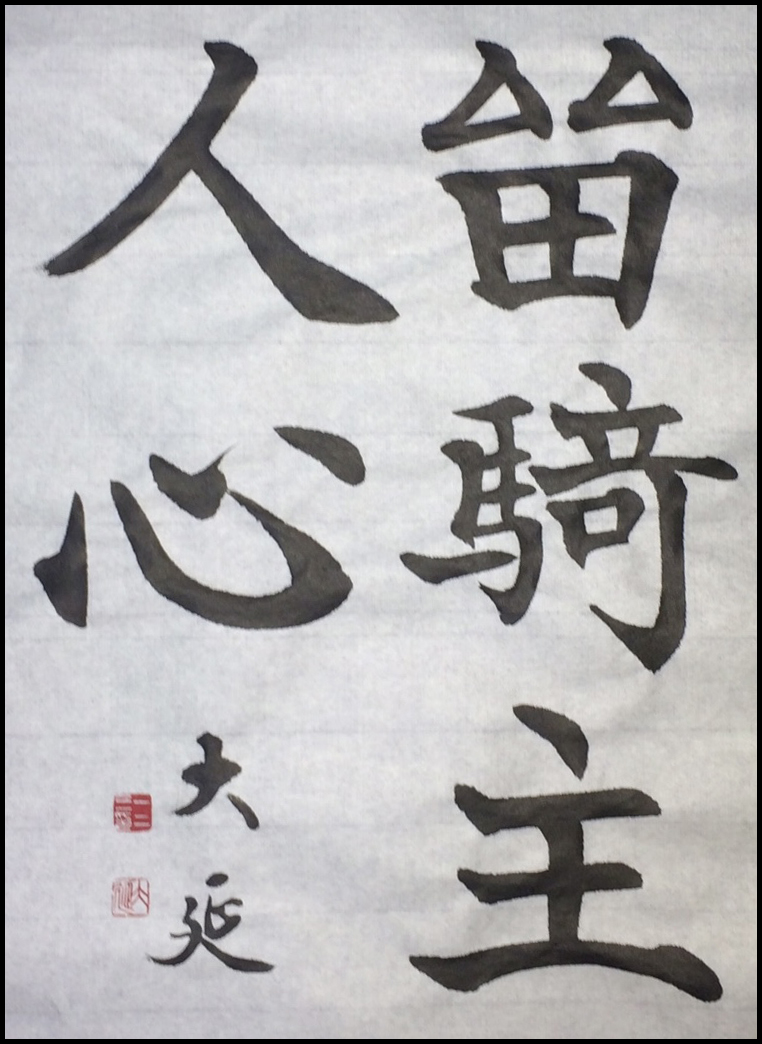 㽞騎主
人心
大延